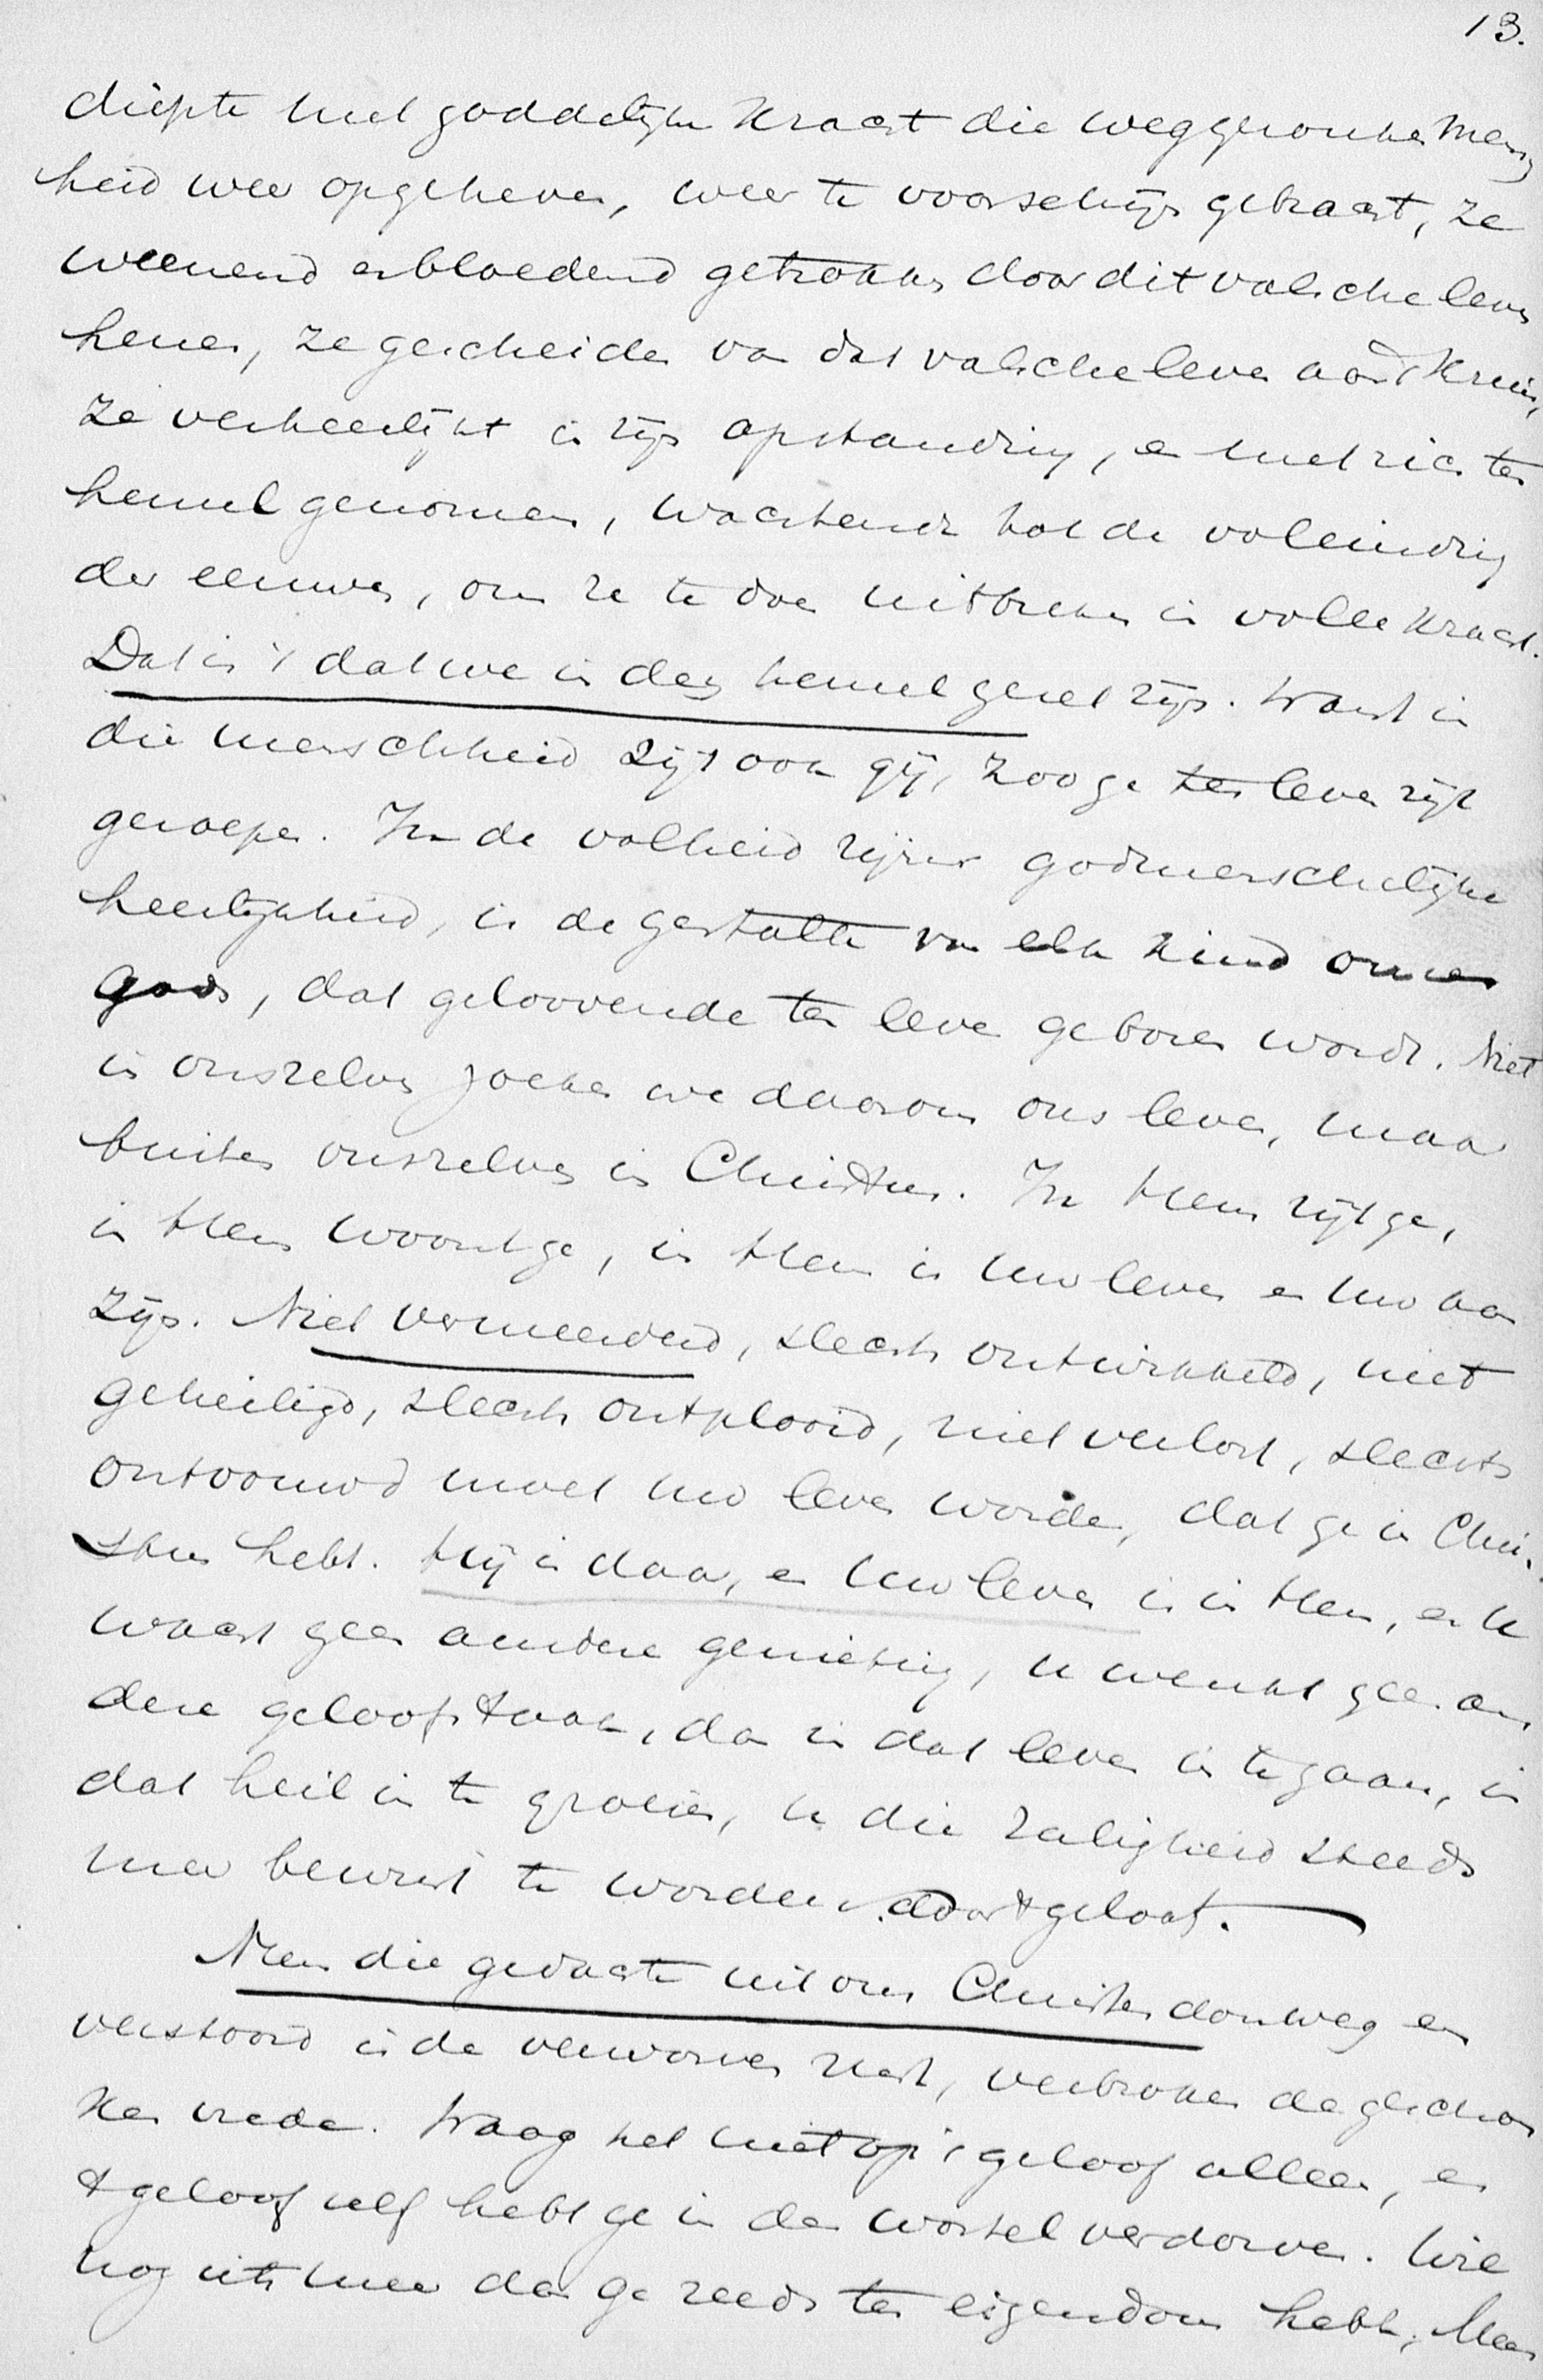 13.
diepte met goddelijke kracht die weggezonken mensch
heid weer opgeheven, weer te voorschijn gebracht, ze
weenend en bloedend getrokken door dit valsche leven
henen, ze gescheiden van dat valsche leven aan 't kruis,
ze verheerlijkt in zijn opstanding, en met zich ten
hemel genomen, wachtend tot de voleinding
der eeuwen, om ze te doen uitbreken in volle kracht.
Dat is 't dat we in den hemel gezet zijn. Want in
die menschheid zijt ook gij, zoo ge ten leven zijt
geroepen. In de volheid zijner godmenschelijke
heerlijkheid, is de gestalte van elk kind onzes
Gods, dat geloovende ten leven geboren wordt. Niet
in onszelven zoeken we daarom ons leven, maar
buiten onszelven in Christus. In Hem zijt ge,
in Hem woont ge, in Hem is uw leven en uw aan
zijn. Niet vermeerderd, slechts ontwikkeld, niet
geheiligd, slechts ontplooid, niet verlost, slechts
ontvouwd moet uw leven worden, dat ge in Chri-
stus hebt. Hij is daar, en uw leven is in Hem, en u
wacht geen andere genieting, u wenkt geen an
dere geloofstaak, dan in dat leven in te gaan, in
dat heil in te groeien, u die zaligheid steeds
meer bewust te worden door 't geloof.
Neem die gedachte uit ons Christendom weg en
verstoord is de verworven rust, verbroken de geschon
ken vrede. Waag het niet op 't geloof alleen, en
't geloof zelf hebt ge in den wortel verdorven. Wil
nog iets meer dan ge reeds ten eigendom hebt,